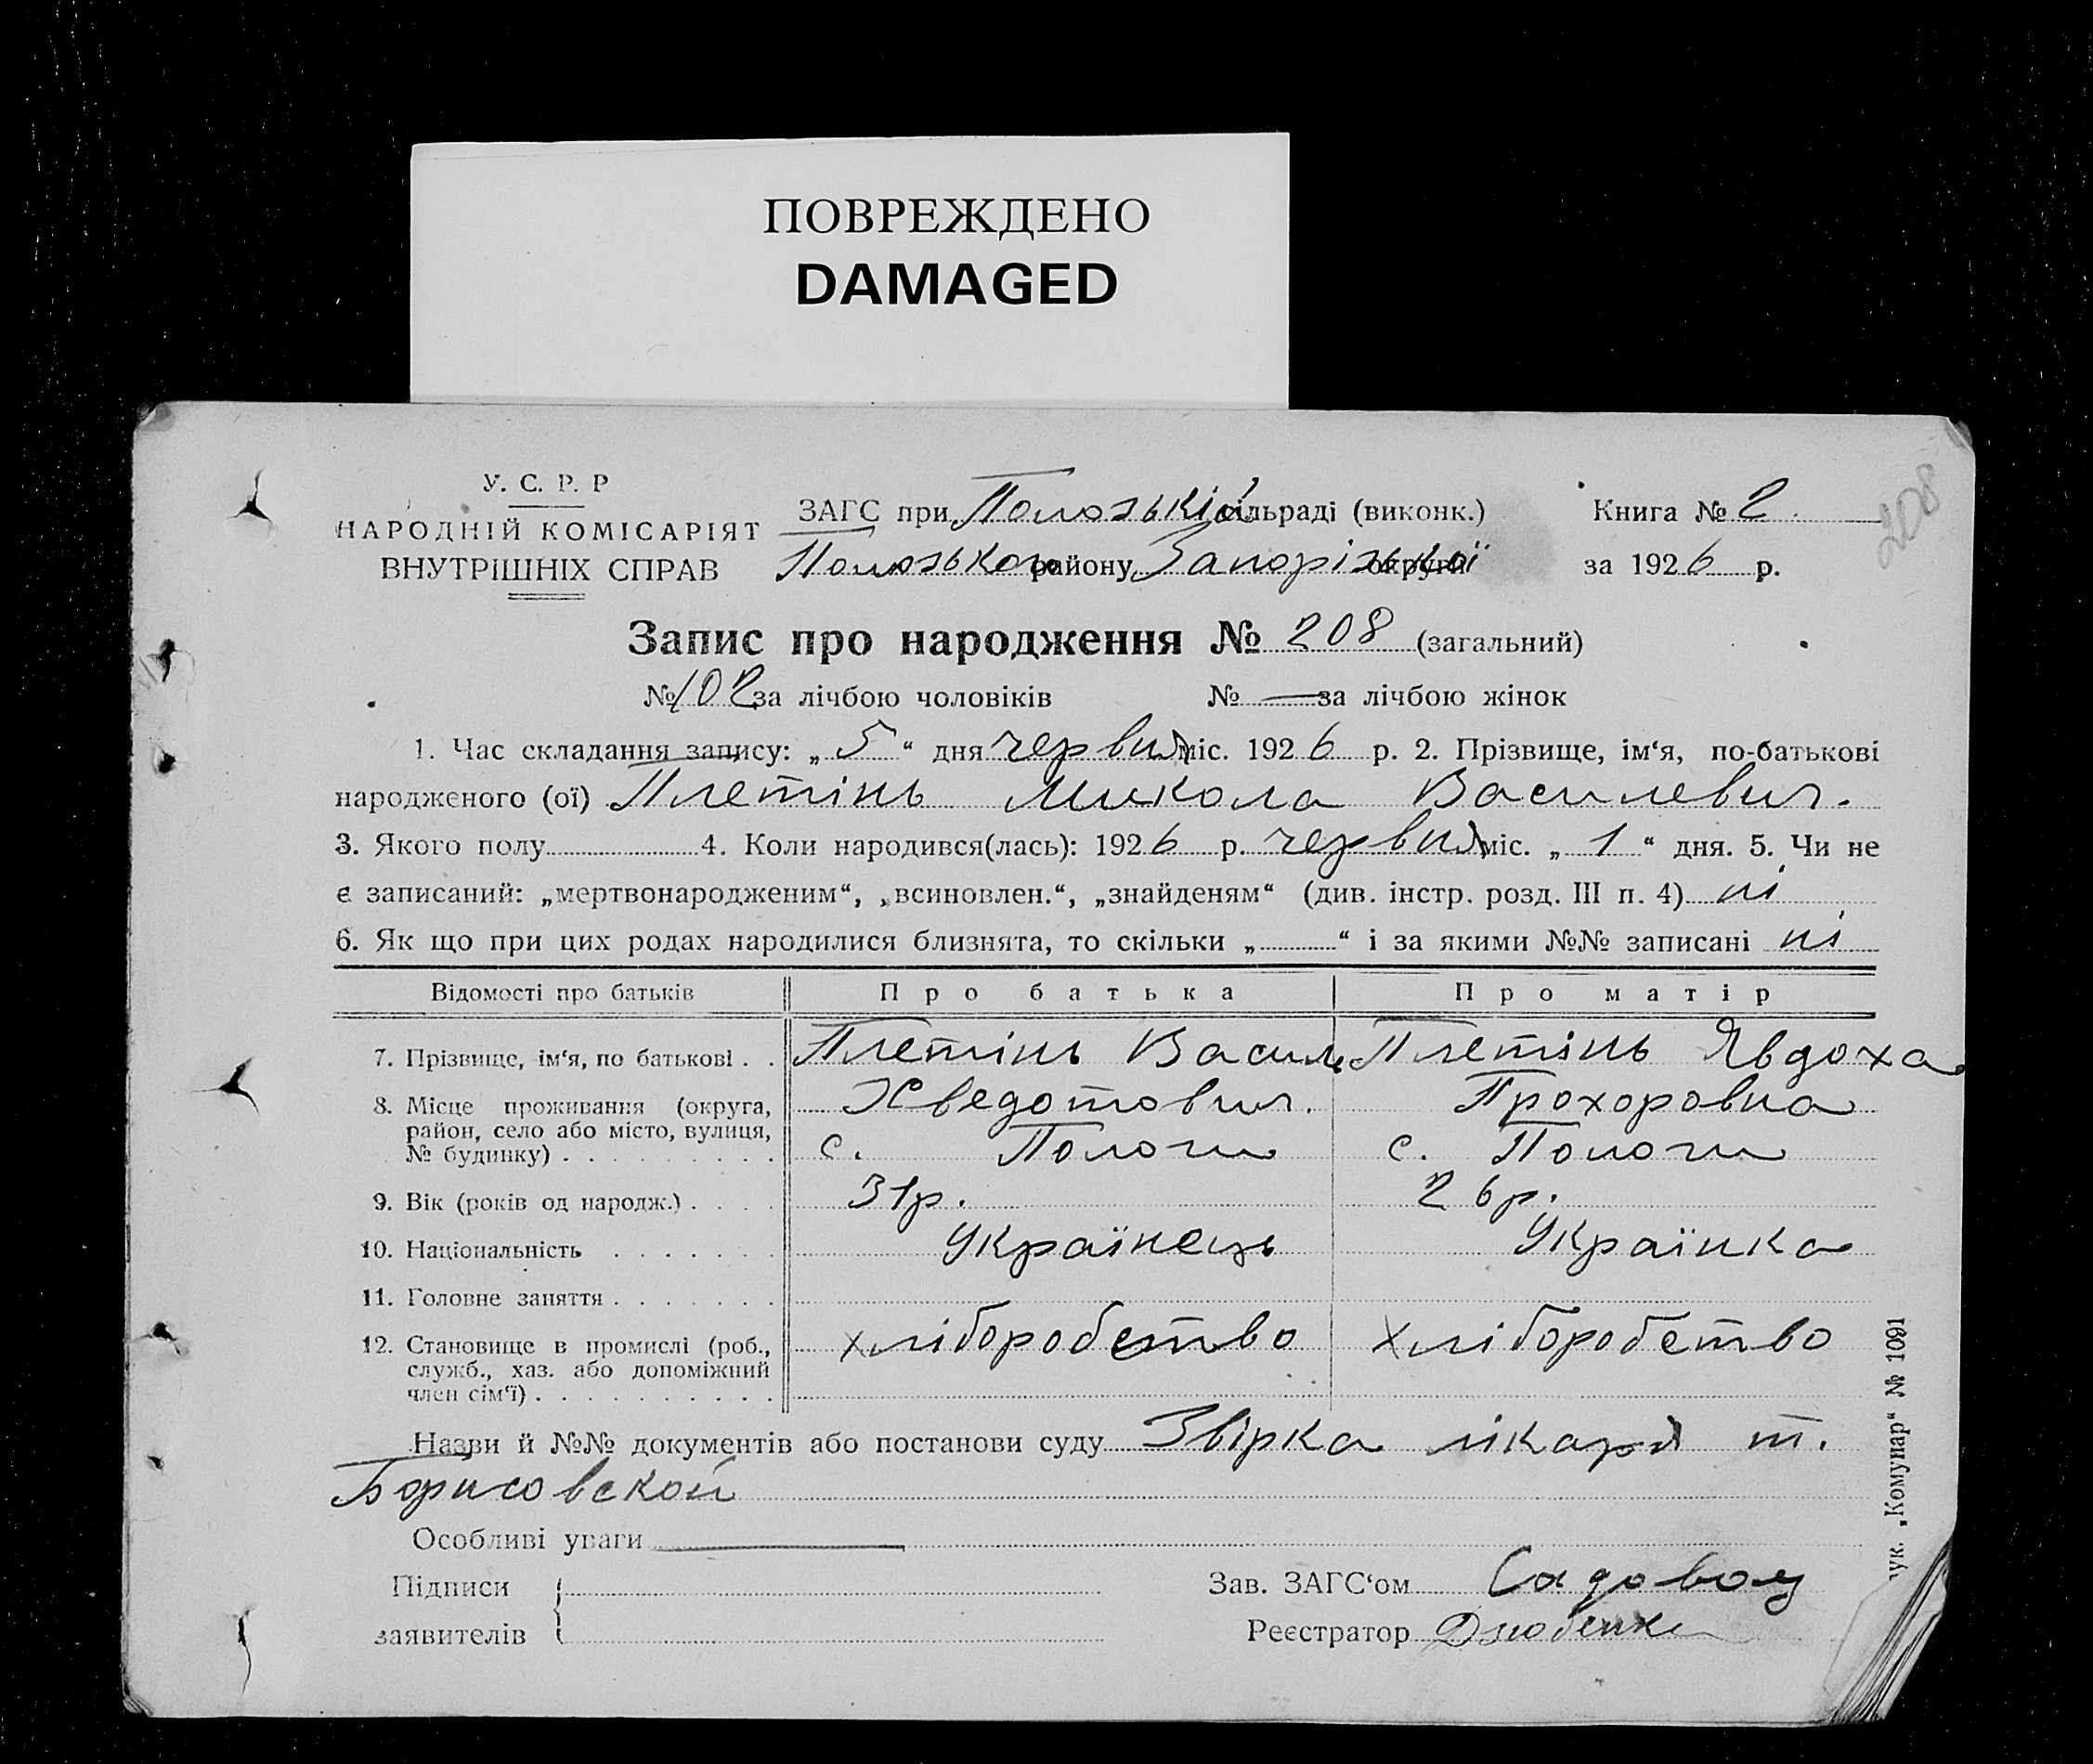 ПОВРЕЖДЕНО
DAMAGED
У. С. Р. Р
НАРОДНІЙ КОМІСАРІЯТ
ВНУТРІШНІХ СПРАВ
ЗАГС при Полозькій сільраді (виконк.)
Полозького району Запорізької округи
Книга № 2
за 1926 р.
208
Запис про народження № 208 (загальний)
№ 102 за лічбою чоловіків № — за лічбою жінок
1. Час складання запису: „ 5 “ дня червня міс. 1926 р. 2. Прізвище, ім‘я, по-батькові
народженого (ої) Плетінь Микола Василевич.
3. Якого полу 4. Коли народився(лась): 1926 р. червня міс. „ 1 “ дня. 5. Чи не
є записаний: „мертвонародженим“, „всиновлен.“, „знайденям“ (див. інстр. розд. III п. 4) ні
6. Як що при цих родах народилися близнята, то скільки „ “ і за якими №№ записані ні
Відомості про батьків Про батька Про матір
7. Прізвище, ім‘я, по батькові . . Плетінь Василь Плетінь Явдоха
Хведотович. Прохоровна
8. Місце проживання (округа,
район, село або місто, вулиця,
№ будинку) . . . . . . . . . с. Пологи с. Пологи
9. Вік (років од народж.) . . . . 31р. 26р.
10. Національність . . . . . . . Українець Українка
11. Головне заняття . . . . . . .
12. Становище в промислі (роб.,
служб., хаз. або допоміжний
член сім‘ї) . . . . . . . . . . хліборобство хліборобство
Назви й №№ документів або постанови суду Звірка лікаря т.
Борисовской
Особливі уваги
Підписи
заявителів
Зав. ЗАГС‘ом Садовой
Реєстратор
ук. „Комунар“ № 1091